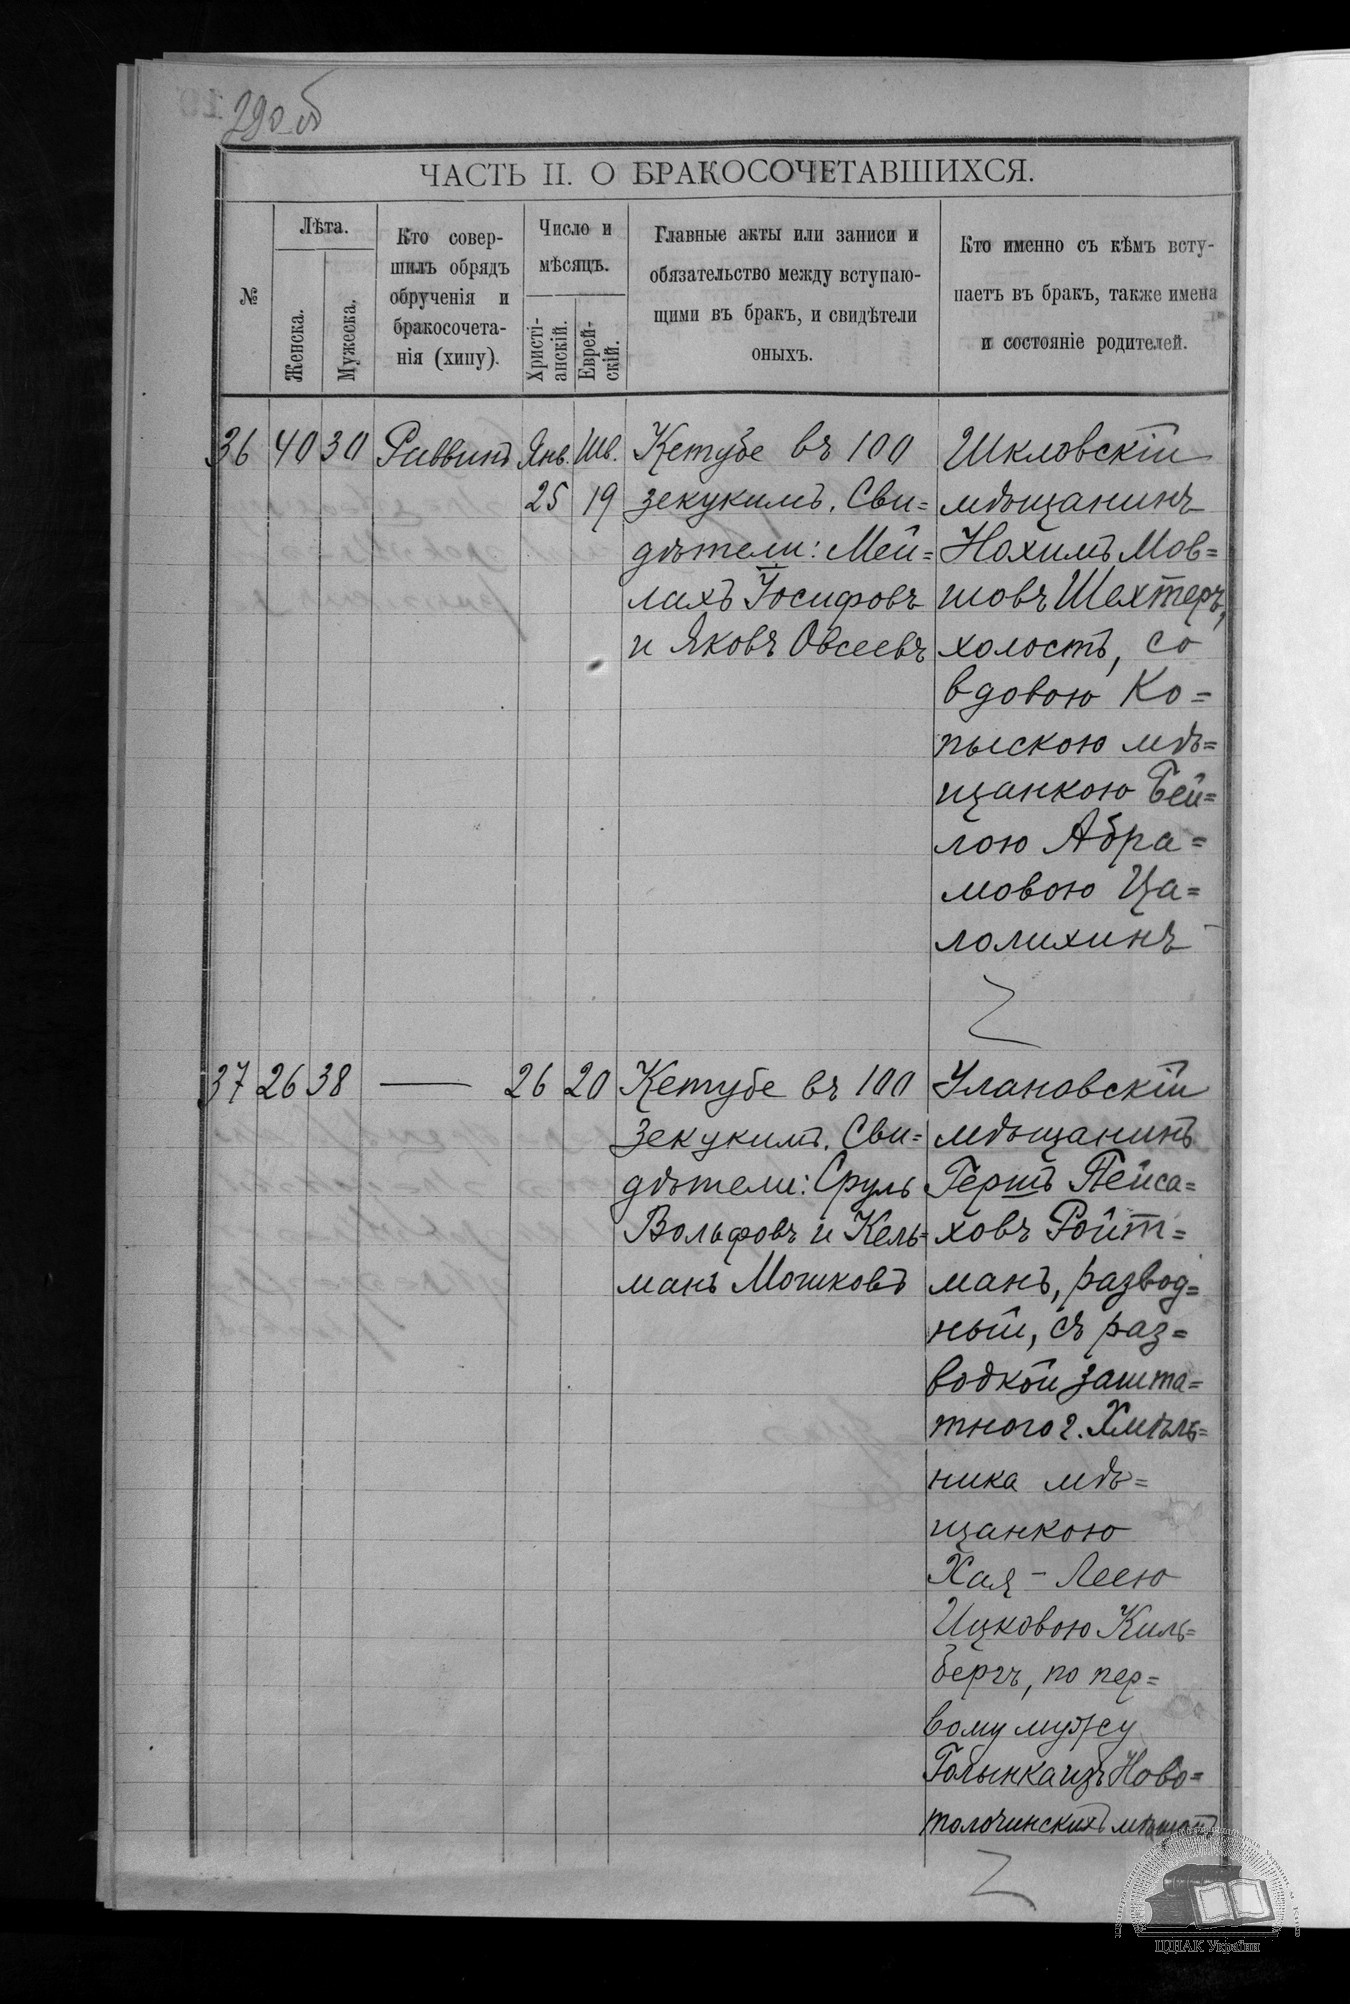 290 об
ЧАСТЬ II. О БРАКОСОЧЕТАВШИХСЯ.
№
Лѣта.
Женска.
Мужеска.
Кто совер-
шилъ обрядъ
обрученія и
бракосочета-
нія (хипу).
Число и
мѣсяцъ.
Христі-
анскій.
Еврей-
скій.
Главные акты или записи и
обязательство между вступаю-
щими въ бракъ, и свидѣтели
оныхъ.
Кто именно съ кѣмъ всту-
паетъ въ бракъ, также имена
и состояніе родителей.
36 40 30 Раввинъ Янв. Шв.
25 19
Кетубе въ 100
зекукимъ. Сви=
дѣтели: Мей=
лахъ Іосифовъ
и Яковъ Овсеевъ
Шкловскій
мѣщанинъ
Нохимъ Мов=
шовъ Шехтеръ,
холостъ, со
вдовою Ко=
пыскою мѣ=
щанкою Бей=
лою Абра=
мовою Ца=
лолихинъ
37 26 38 — 26 20
Кетубе въ 100
зекукимъ. Сви=
дѣтели: Сруль
Вольфовъ и Кель=
манъ Мошковъ
Улановскій
мѣщанинъ
Гершъ Пейса=
ховъ Ройт=
манъ, развод=
ный, съ раз=
водкой зашта=
тного г. Хмѣль=
ника мѣ=
щанкою
Хая-Леею
Ицковою Киль=
бергъ, по пер=
вому мужу
Голынка изъ Ново=
толочинскихъ мѣщанъ
ЦДІАК України